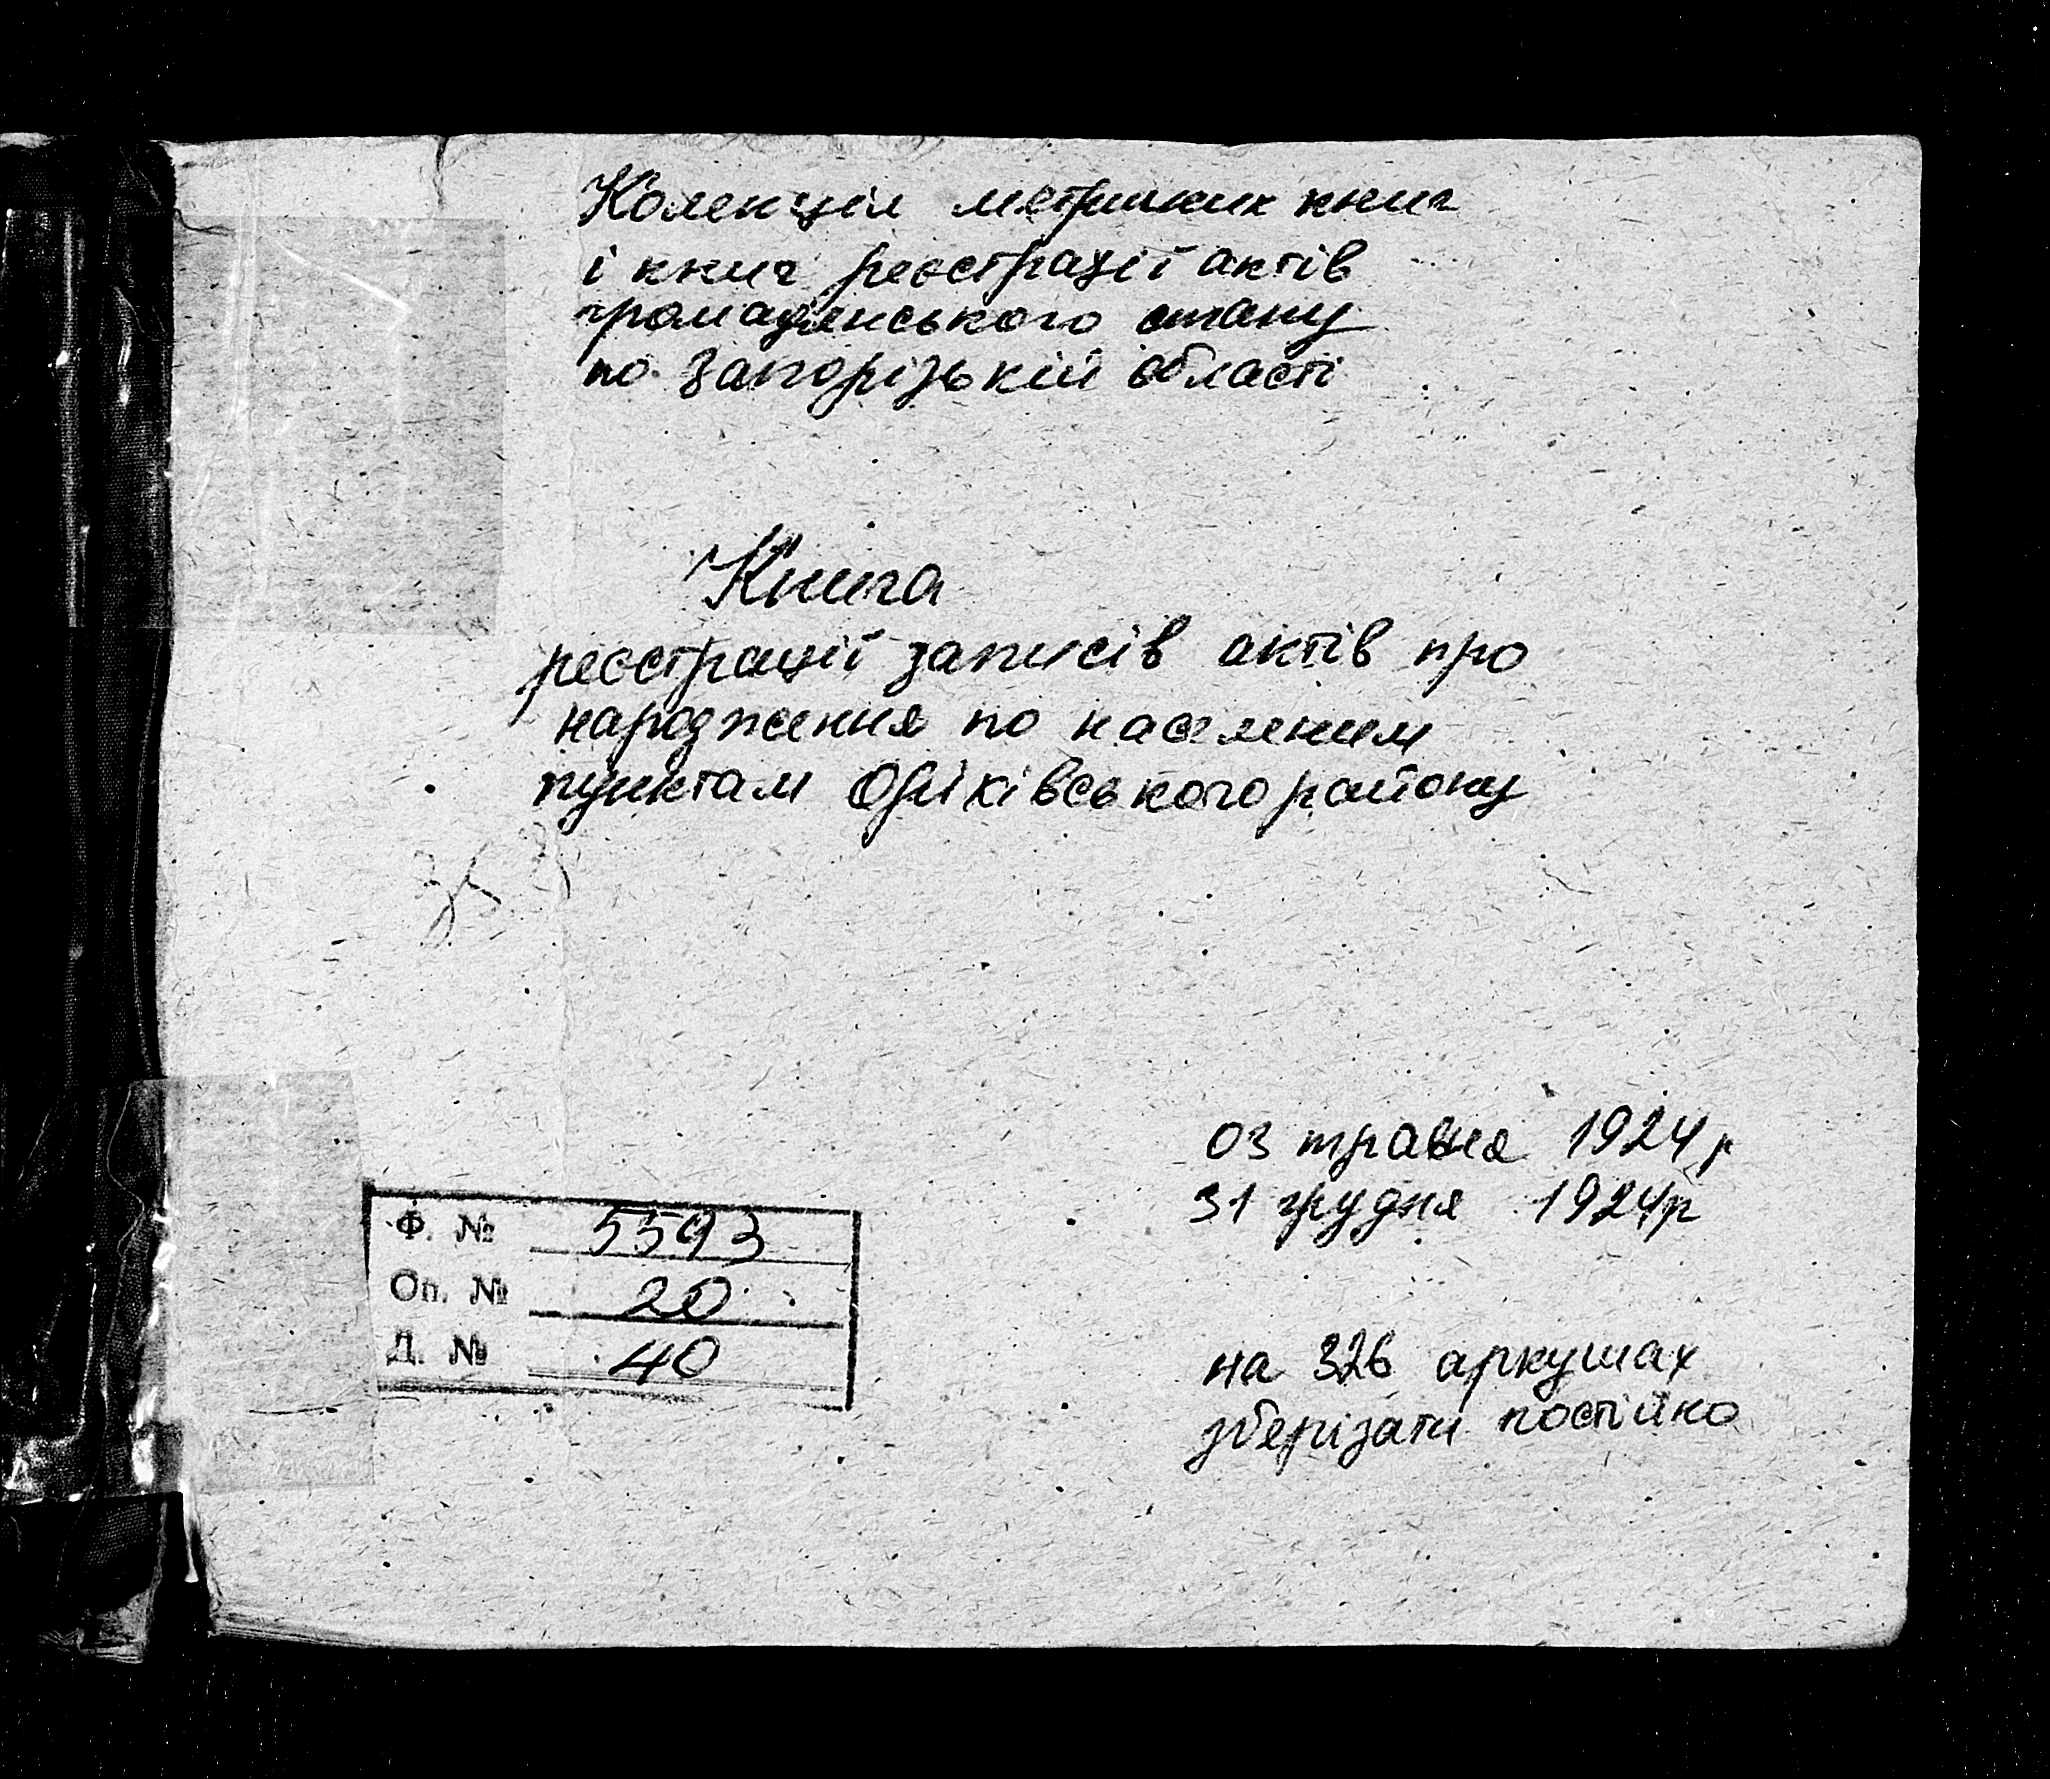 Колекція метричних книг
і книг реєстрації актів
громадянського стану
по Запорізькій області
Книга
реєстрації записів актів про
народження по населеним
пунктам Оріхівського району
03 травня 1924 р
31 грудня 1924р
Ф. № 5593
Оп. № 20
Д. № 40
на 326 аркушах
зберігати постійно